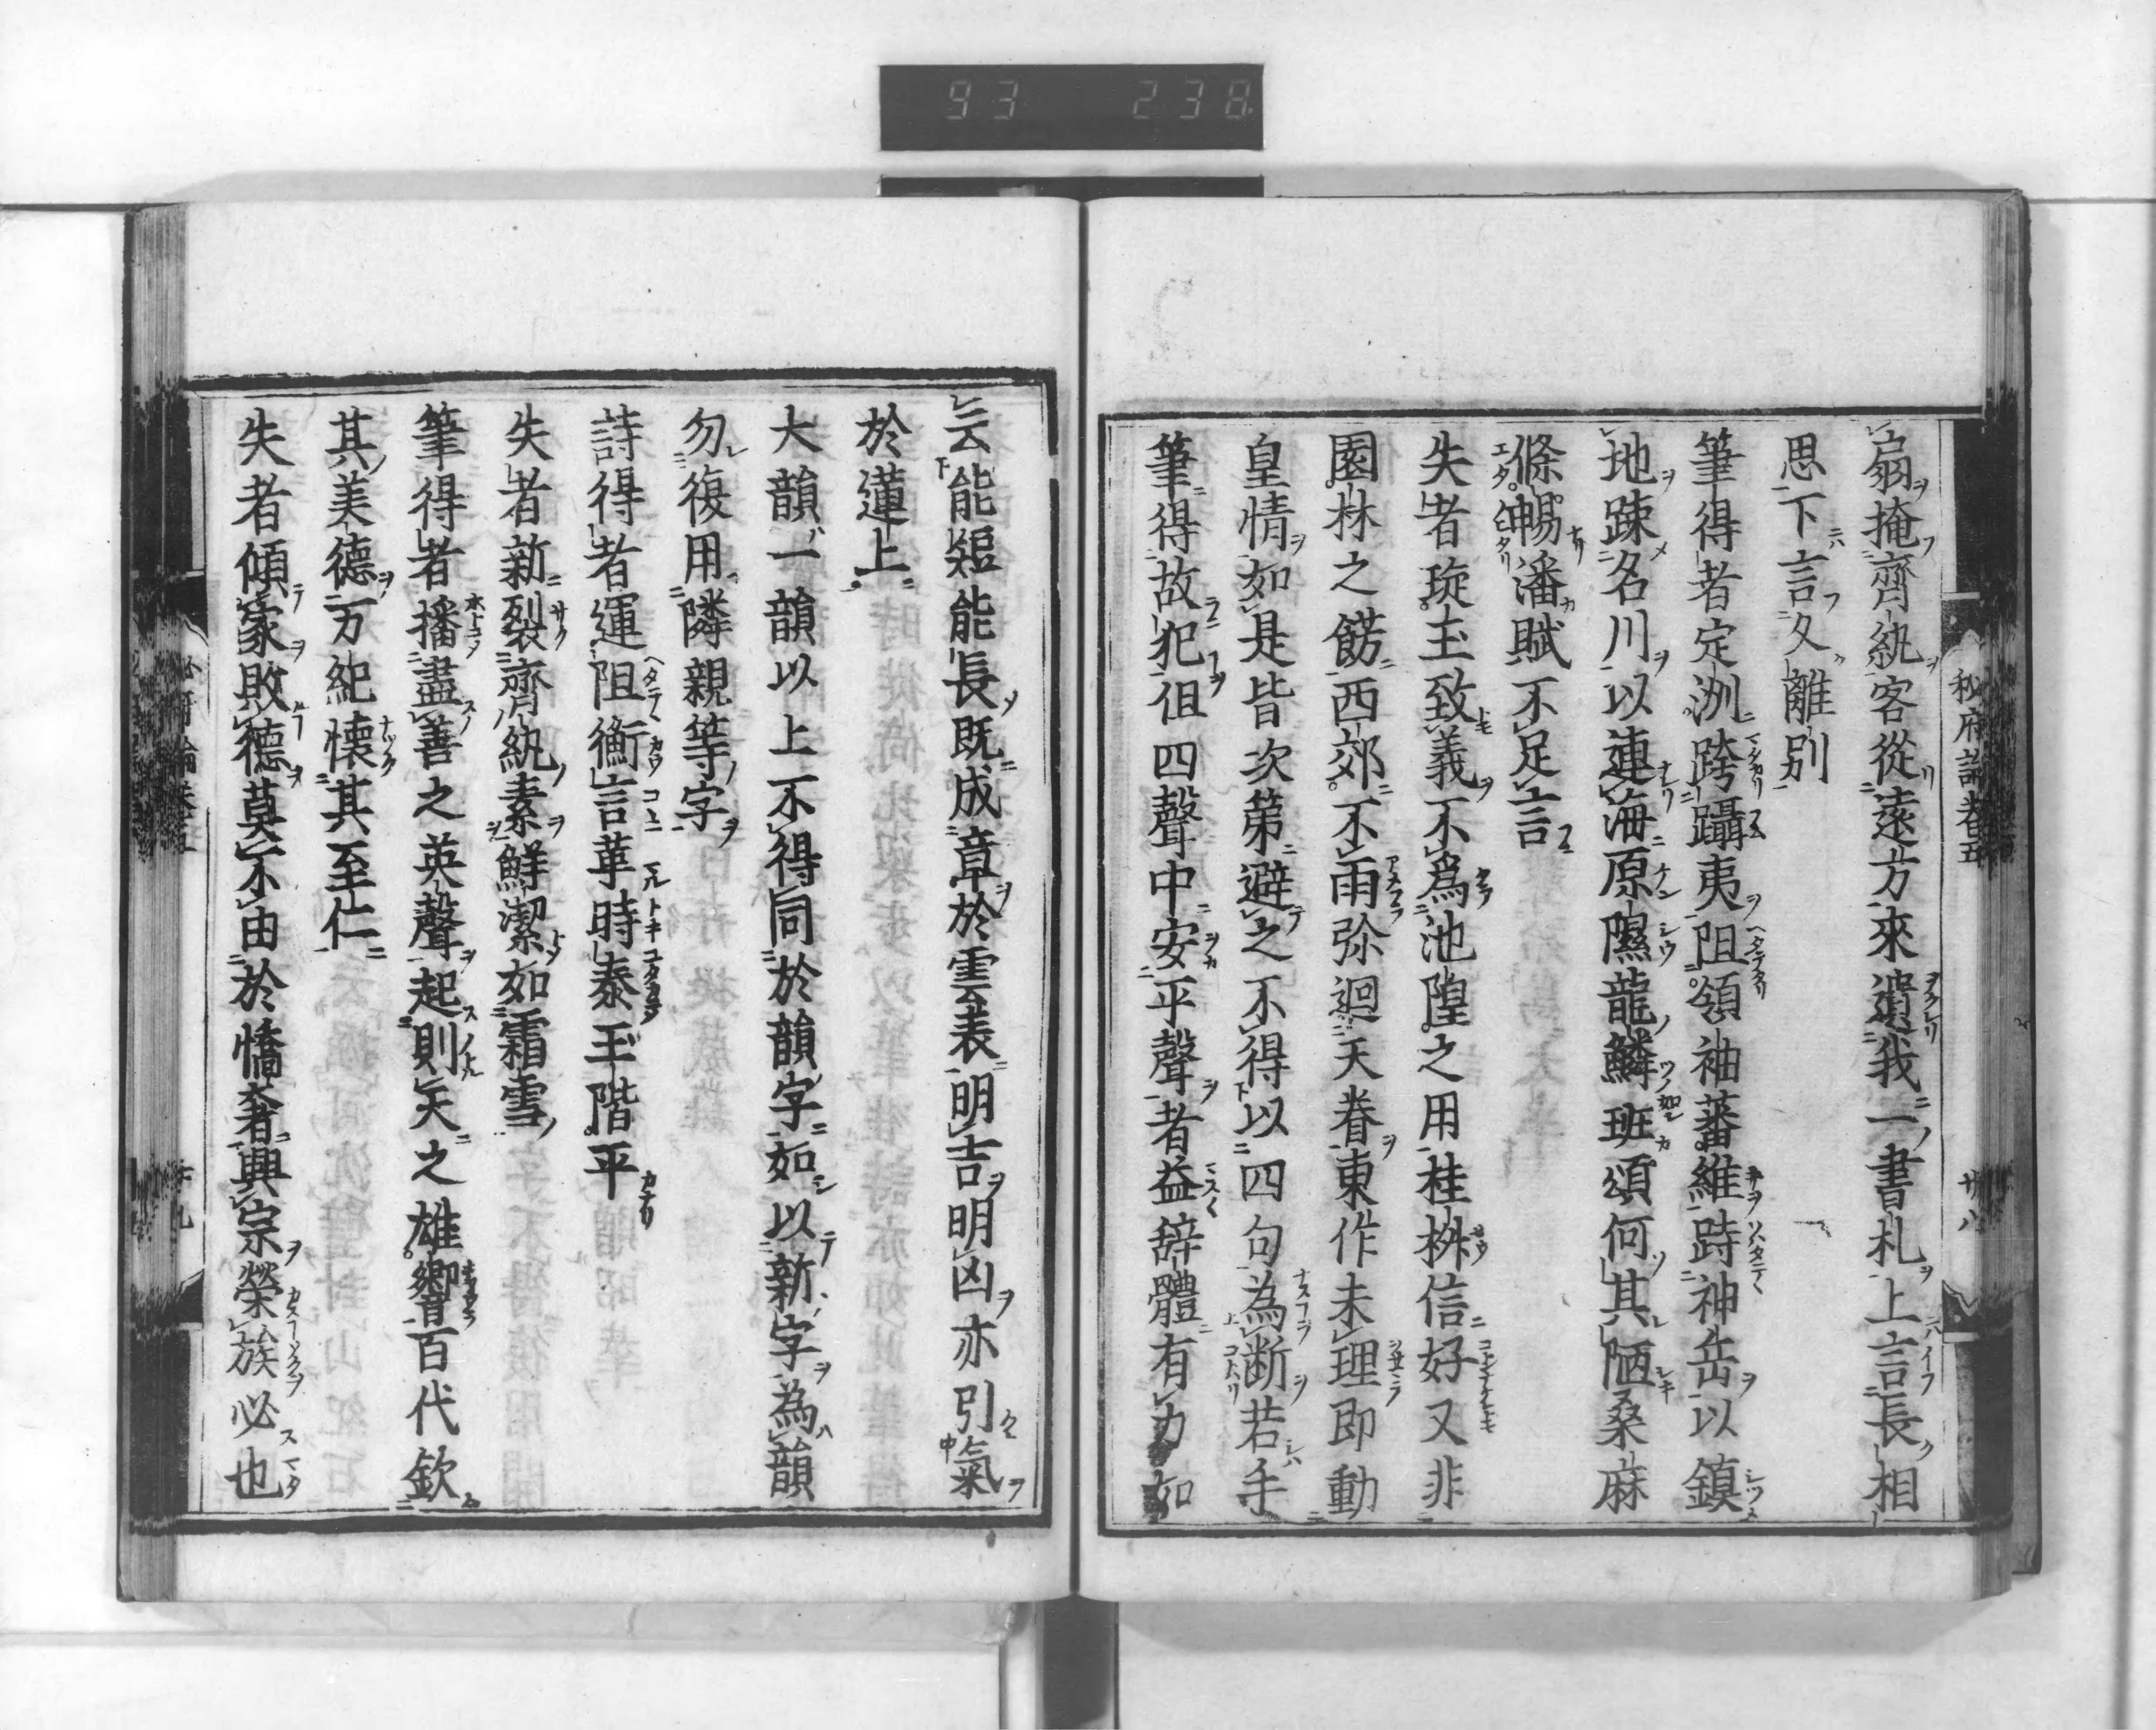 93 238
秘府論卷五 廿八
扇掩齊紈客從遠方來遺我一書札上言長相
思下言久離別
筆得者定洲跨躡夷阻領袖蕃維跱神岳以鎮
地踈名川以連海原隰龍鱗班頌何其陋桑麻
條暢潘賦不足言
失者琁玉致義不爲池隍之用桂桝信好又非
園林之餝西郊不雨弥迴天眷東作未理即動
皇情如是皆次第避之不得以四句為断若手
筆得故犯但四聲中安平聲者益辞體有力如
云能短能長既成章於雲表明吉明凶亦引氣
於蓮上
大韻一韻以上不得同於韻字如以新字為韻
勿復用隣親等字
詩得者運阻衡言革時泰玉階平
失者新裂齊紈素鮮潔如霜雪
筆得者播盡善之英聲起則天之雄響百代欽
其美德万紀懐其至仁
失者傾家敗德莫不由於憍奢興宗榮族必也